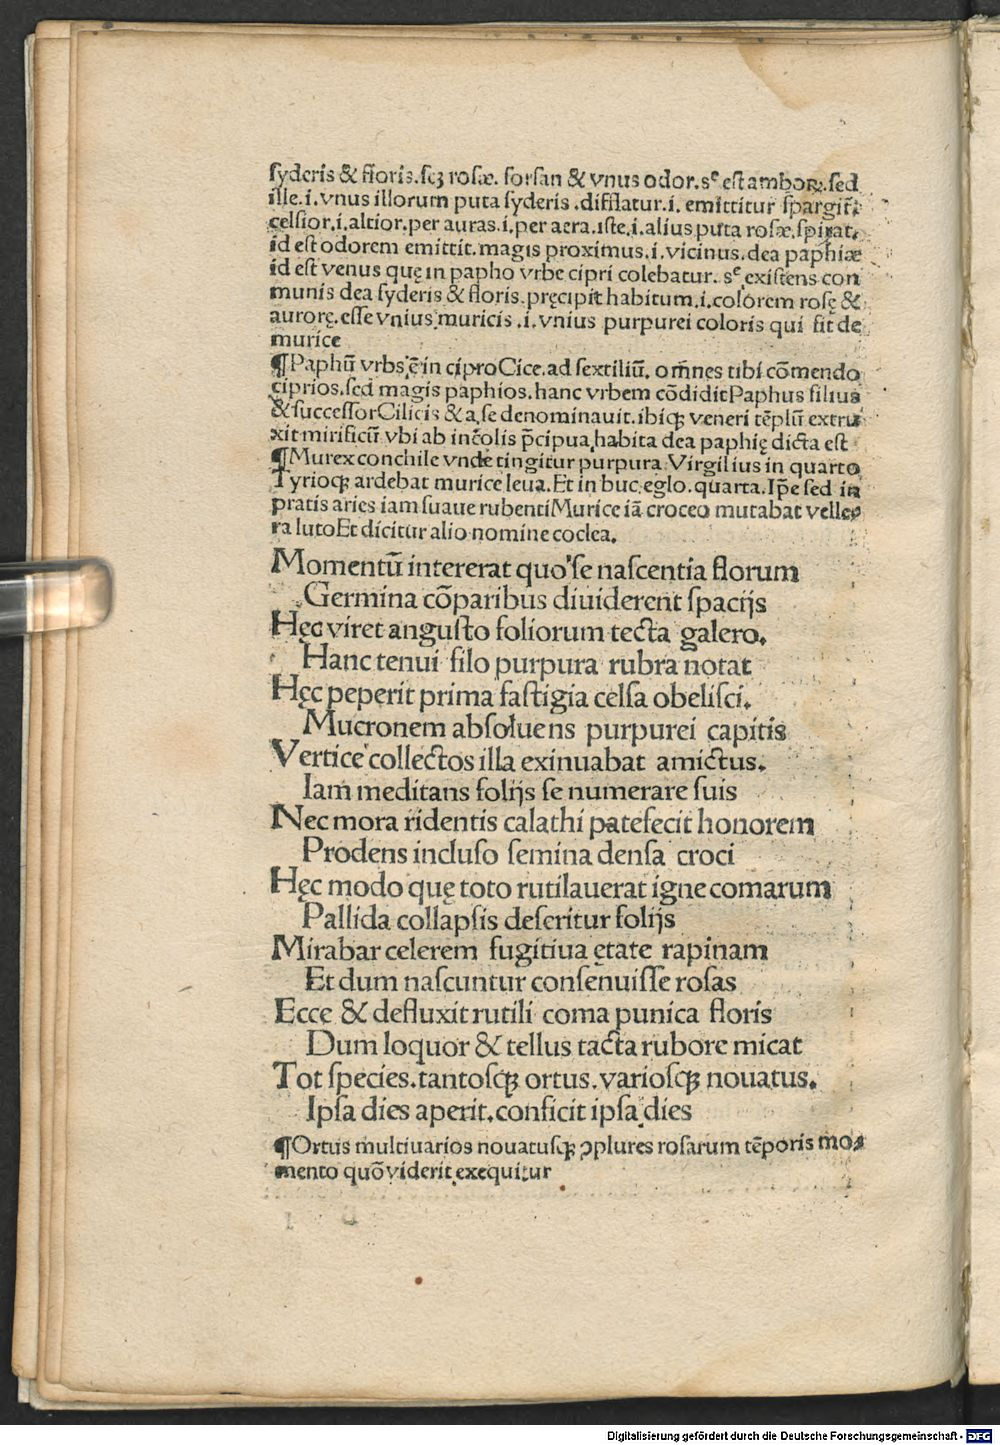 syderis & floris.scꝫ rosæ. forsan & vnus odor.sᵉ est amboꝝ.sed
ille.i.vnus illorum puta syderis.difflatur.i.emittitur spargit̄.
celsior.i.altior.per auras.i.per aera.iste.i.alius puta rosæ.spirat.
id est odorem emittit.magis proximus.i.vicinus.dea paphiæ
id est venus quę in papho vrbe cipri colebatur.sᵉ.existens con
munis dea syderis & floris.pręcipit habitum.i.colorem rosę &
aurorę.esse vnius muricis.i.vnius purpurei coloris qui fit de
murice
¶Paphū vrbs ē in cipro Cice.ad sextiliū. om̄nes tibi cōmendo
ciprios.sed magis paphios.hanc vrbem cōdidit Paphus filius
& successor Cilicis & a se denominauit.ibiqꝫ veneri tēplū extru
xit mirificū vbi ab incolis p̄cipua habita dea paphię dicta est
¶Murex conchile vnde tingitur purpura Virgilius in quarto
Tyrioqꝫ ardebat murice leua.Et in buc.eglo.quarta.Ip̄e sed in
pratis aries iam suaue rubenti Murice iā croceo mutabat velle
ra luto Et dicitur alio nomine coclea.
Momentū intererat quo se nascentia florum
Germina cōparibus diuiderent spacijs
Hęc viret angusto foliorum tecta galero.
Hanc tenui filo purpura rubra notat
Hęc peperit prima fastigia celsa obelisci.
Mucronem absoluens purpurei capitis
Vertice collectos illa exinuabat amictus.
Iam meditans folijs se numerare suis
Nec mora ridentis calathi patefecit honorem
Prodens incluso semina densa croci
Hęc modo quę toto rutilauerat igne comarum
Pallida collapsis deseritur folijs
Mirabar celerem fugitiua ętate rapinam
Et dum nascuntur consenuisse rosas
Ecce & defluxit rutili coma punica floris
Dum loquor & tellus tacta rubore micat
Tot species.tantosqꝫ ortus.variosqꝫ nouatus.
Ipsa dies aperit.conficit ipsa dies
¶Ortus multiuarios nouatusqꝫ ꝯplures rosarum tēporis mo
mento quō viderit exequitur
Digitalisierung gefördert durch die Deutsche Forschungsgemeinschaft - DFG